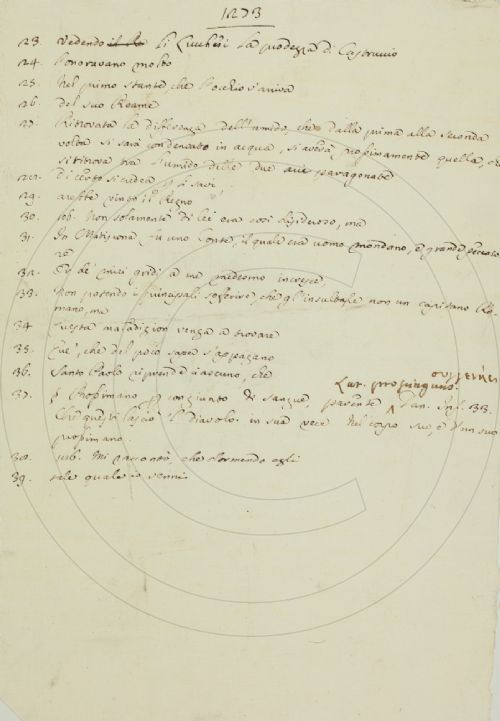 1273
23. vedendo il Re li Lucchesi la prodezza di Castruccio
24. l'onoravano molto
25. Nel primo stante che l'occhio s'aviva
26. Del suo Reame
27. Ritrovata la differenza dell'umido, che dalla prima alla seconda
volta si sarà condensato in acqua, si averà prossimamente quella, che
si ritrova fra l'umido delle due arie paragonate
28. Di certo si credea
29. avesse vinto il Regno
30. Non solamente di lei era così desideroso, ma
31. In Matisuna fu uno Conte, il quale era uomo mondano, e grande peccato
re
32. De' miei gridi a me medesimo incresce,
33. Non potendo i principali sofferire, che gl'insultasse non un capitano Ro-
mano, ma
34 Questa maladizion venga a trovare
35. Que', che del poco saper s'appagano
36. Santo Paolo riprende ciascuno, che
συγγενής
Lat. propinquus.
37. Prossimano congiunto di sangue, parente Dan. Inf. 33.
Che questi lasciò 'l Diavolo in sua vece Nel corpo suo, e d'un suo
prossimano.
38. Mi raccontò, che dormendo egli
39. tale quale io venni